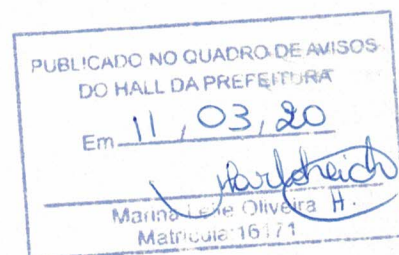 PUBLICADO NO QUADRO DE AVISOS
DO HALL DA PREFEITURA
Em 11 / 03 / 20
Marina Oliveira H.
Matrícula 16171